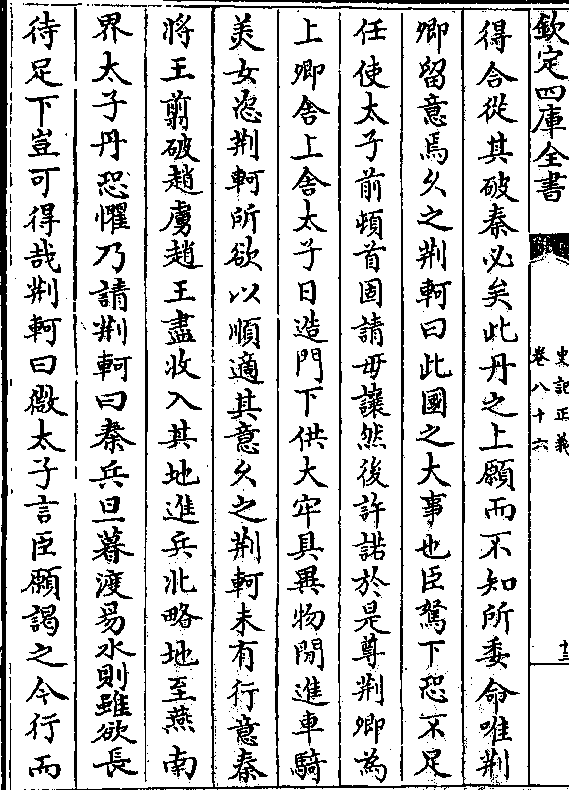 欽定四庫全書
史記正義
卷八十六
十三
得合從其破秦必矣此丹之上願而不知所委命唯荆
卿留意焉久之荆軻曰此國之大事也臣駑下恐不足
任使太子前頓首固請毋讓然後許諾於是尊荆卿為
上卿舍上舍太子日造門下供太牢具異物閒進車騎
美女恣荆軻所欲以順適其意久之荆軻未有行意秦
將王翦破趙虜趙王盡收入其地進兵北略地至燕南
界太子丹恐懼乃請荆軻曰秦兵旦暮渡易水則雖欲長
待足下豈可得哉荆軻曰微太子言臣願謁之今行而